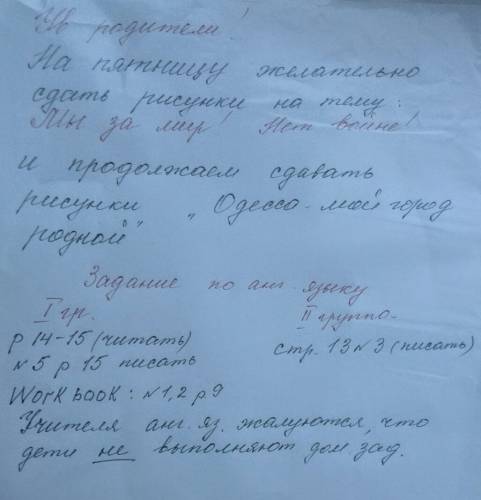 Ув родители!
На пятницу желательно
сдать рисунки на тему:
Мы за мир! Нет войне!
и продолжаем сдавать
рисунки „Одесса - мой город
родной"
Задание по анг. языку
I гр. II группа-
р 14-15 (читать) стр. 13 N3 (писать)
N5 р 15 писать
Workbook: N1,2 p 9
Учителя анг. яз. жалуются, что
дети не выполняют дом. зад.